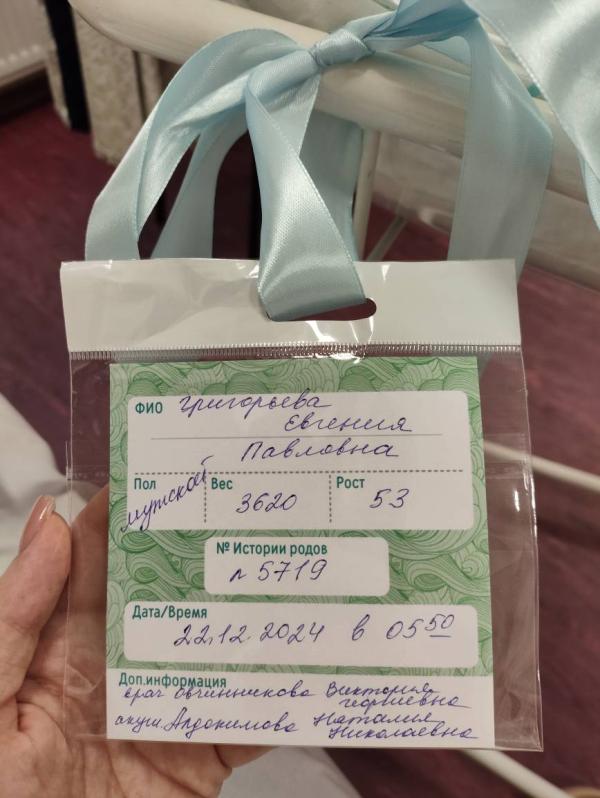 ФИО Григорьева
Евгения
Павловна
Пол мужской Вес 3620 Рост 53
№ Истории родов
№ 5719
Дата/Время
22.12.2024 в 05 50
Доп.информация
врач Овчинникова Виктория
Георгиевна
акуш. Наталия
Николаевна